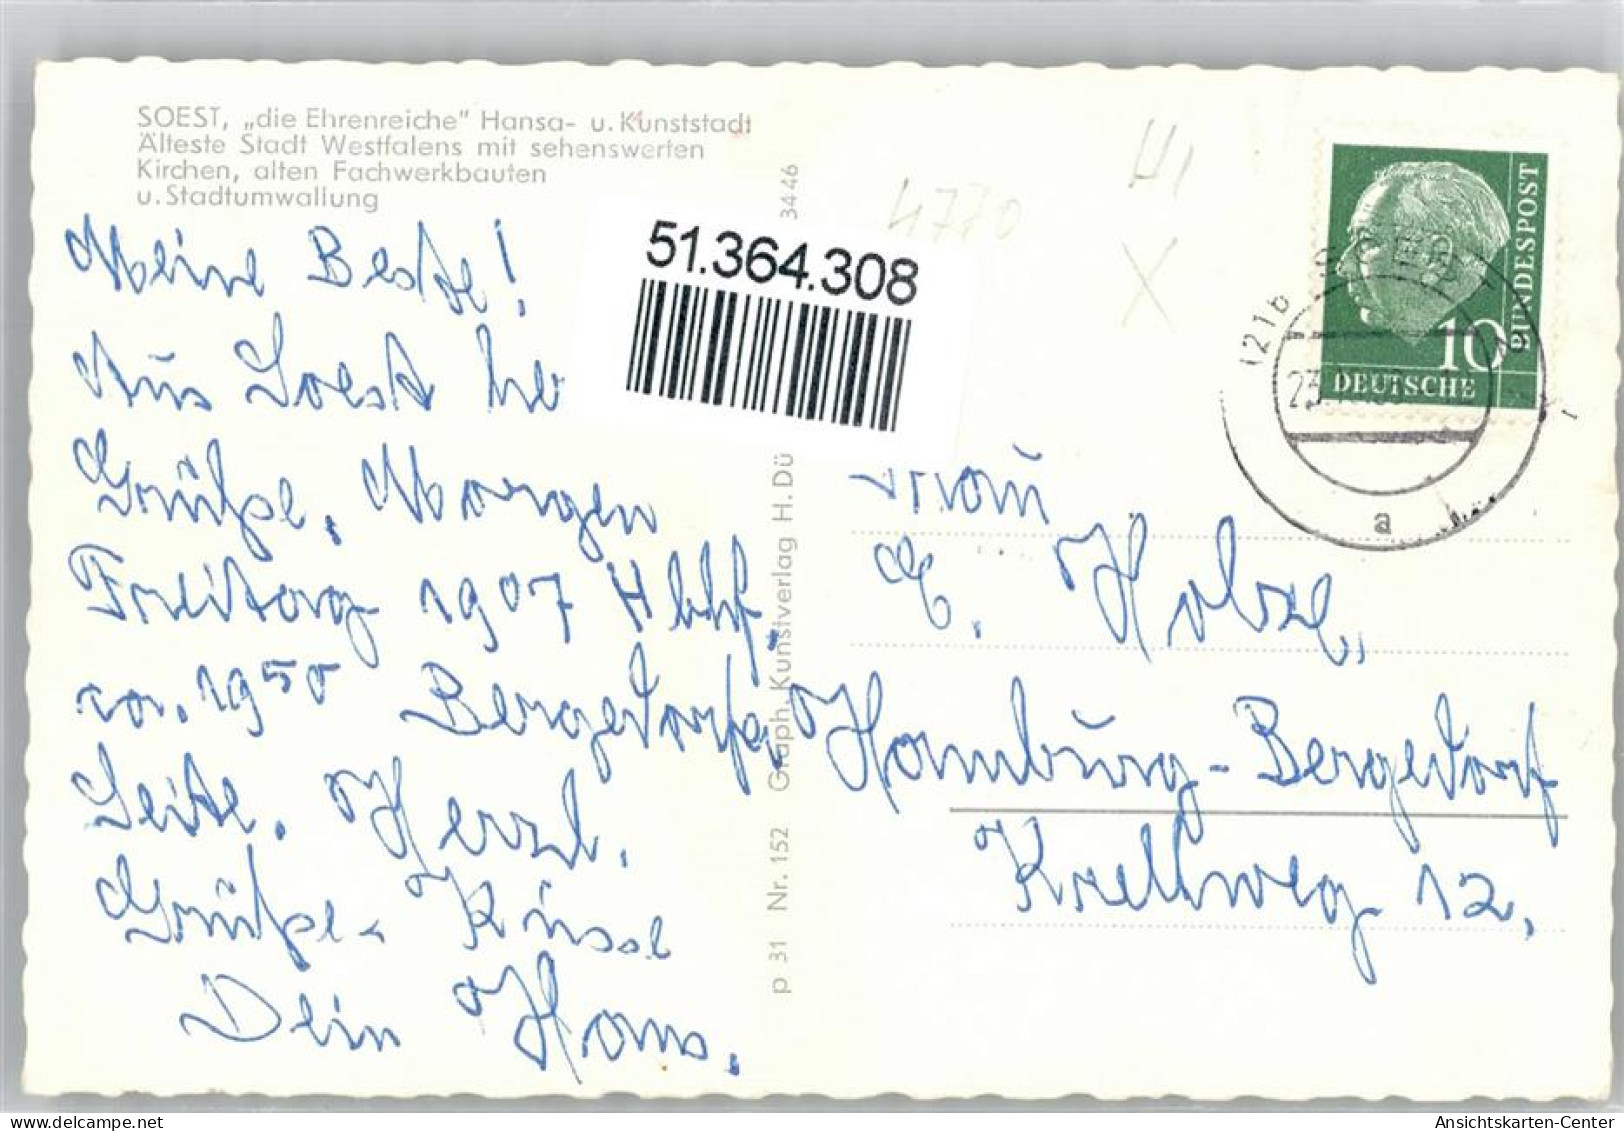 SOEST, „die Ehrenreiche" Hansa- u. Kunststadt
Älteste Stadt Westfalens mit sehenswerten
Kirchen, alten Fachwerkbauten
u. Stadtumwallung
Meine Beste!
Aus Soest
Grüße, Morgen
Freitag 1907 Hbhf.
1950 Bergedorfer
Seite. Herzl.
Grüße Küsse
Dein Hans.
p 31 Nr. 152 Graph. Kunstverlag H. Dü
3446
51.364.308
4770
X
BUNDESPOST
10
DEUTSCHE
(21b
23.
a
Frau
E. Holze,
Hamburg-Bergedorf
Krellweg 12.
Ansichtskarten-Center